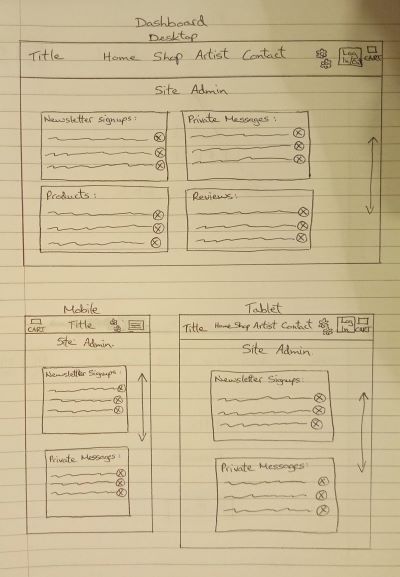 Dashboard
Desktop
Title Home Shop Artist Contact Log In/Out CART
Site Admin
Newsletter signups: Private Messages:
Products: Reviews:
Mobile
CART Title
Site Admin.
Newsletter Signups:
Private Messages:
Tablet
Title Home Shop Artist Contact Log In CART
Site Admin.
Newsletter Signups:
Private Messages: